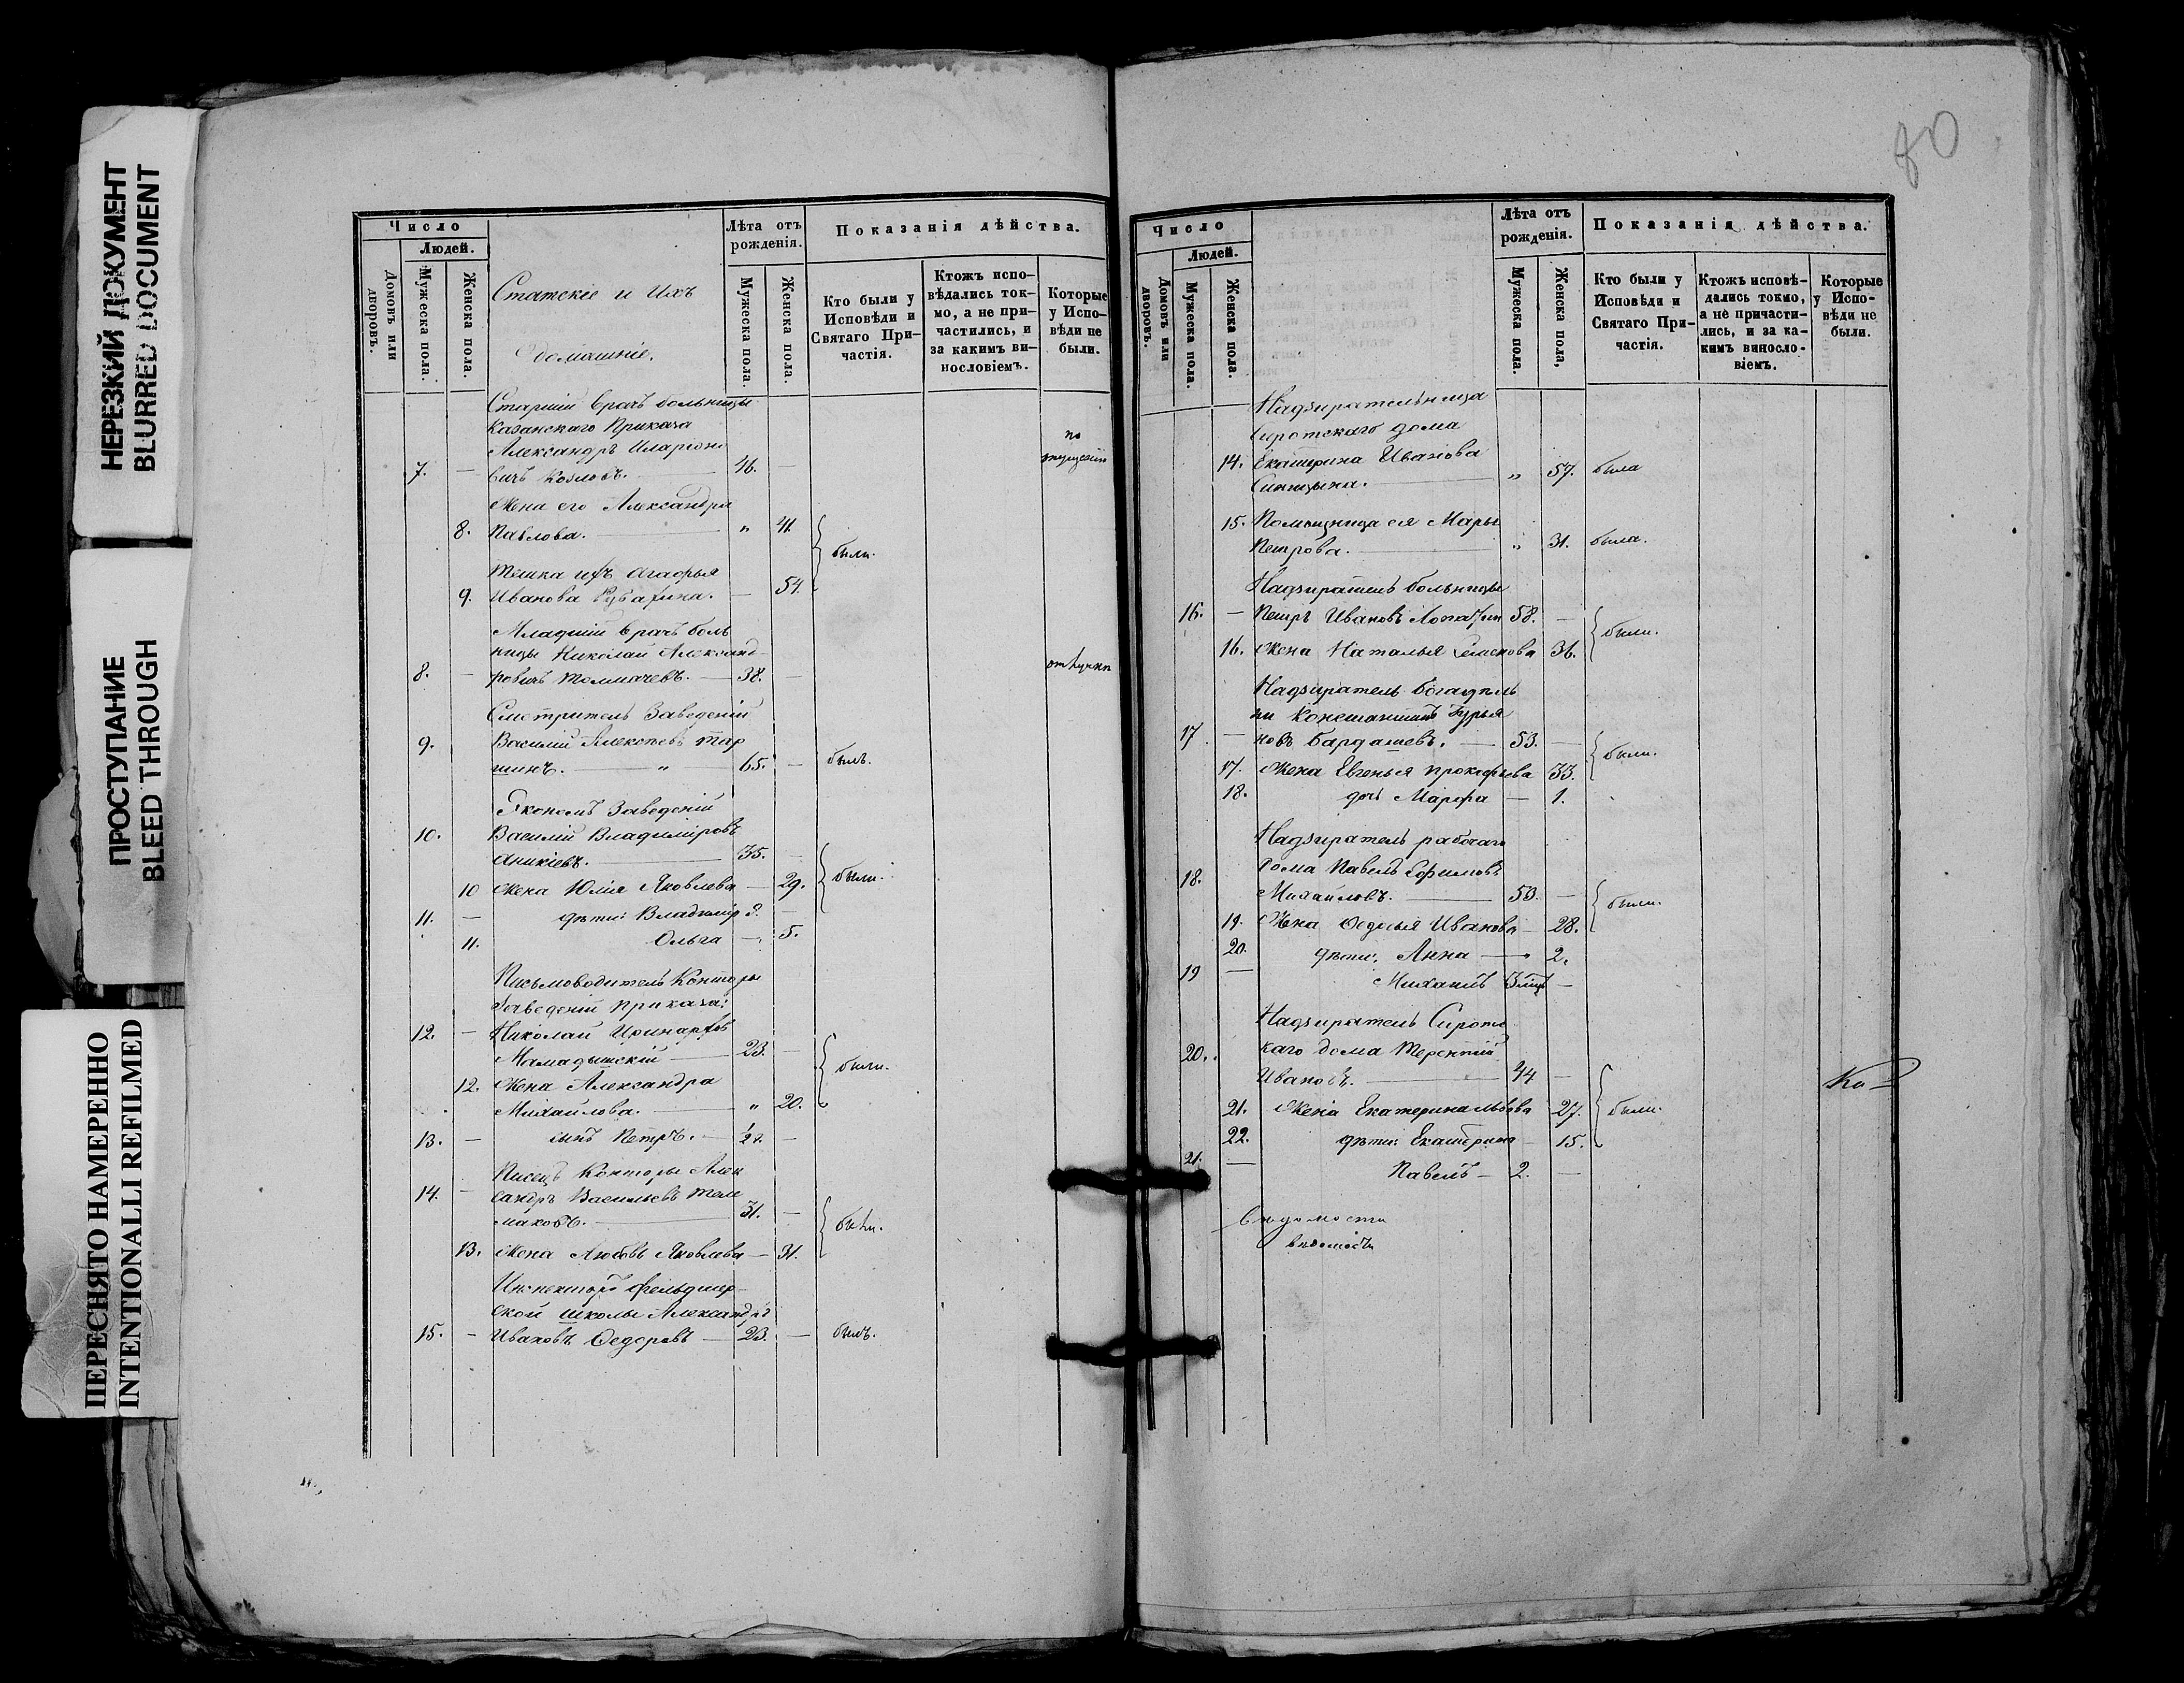 НЕРЕЗКИЙ ДОКУМЕНТ
BLURRED DOCUMENT
ПРОСТУПАНИЕ
BLEED THROUGH
ПЕРЕСНЯТО НАМЕРЕННО
INTENTIONALLI REFILMED
Число
Людей.
Домовъ или дворовъ.
Мужеска пола.
Женска пола.
Статскіе и Ихъ
домашніе.
Лѣта отъ рожденія.
Мужеска пола.
Женска пола.
Показанія дѣйства.
Кто были у Исповѣди и Святаго При-частія.
Ктожъ испо-вѣдались ток-мо, а не при-частились, и за какимъ ви-нословіемъ.
Которые у Испо-вѣди не были.
Старшій врачъ больницы
Казанскаго Приказа
Александръ Иларіоно
7. — вичъ Козловъ. — 46. — по опущенію
Жена его Александра
8. Павлова. — " 41.
были.
Тешка ихъ Агафья
9. Иванова — 54.
Младшій врачъ боль
ницы Николай Александ-
8. — ровичъ Толмачевъ. — 38. —
Смотритель Заведеній
9. Василій Алексѣевъ
шинъ. — " 65. — былъ.
Экономъ Заведеній
10. Василій Владиміровъ
Аникіевъ. — 35. —
10 Жена Юлія Яковлева — 29. были.
11. — дѣти: Владиміръ —
11. Ольга — 5.
Письмоводитель Конторы
Заведеній Приказа:
12. — Николай
Мамадышскій — 23. —
12. Жена Александра были.
Михайлова. — " 20.
13. — сынъ Петръ. — —
Писецъ Конторы Алек
14. — сандръ Васильевъ Толе
маховъ. — 31. — были.
13. Жена Любовь Яковлева — 31.
Инспекторъ фельдшер-
ской школы Александръ
15. — Ивановъ Федоровъ — 23. — былъ.
80
Число
Людей.
Домовъ или дворовъ.
Мужеска пола.
Женска пола.
Лѣта отъ рожденія.
Мужеска пола.
Женска пола,
Показанія дѣйства.
Кто были у Исповѣди и Святаго При-частія.
Ктожъ исповѣ-дались токмо, а не причасти-лись, и за ка-кимъ винословіемъ.
Которые у Испо-вѣди не были.
Надзирательница
Сиротскаго дома
14. Екатерина Иванова
Синицына. — " 57. была
15. Помощница ея Марья
Петрова. — " 31. была.
Надзиратель больницы
16. — Петръ Ивановъ Лопатин 58. —
16. Жена Наталья Семенова 36. были.
Надзиратель богадѣль
ни Константинъ Гурья
17 — новъ Бардашевъ. — 53. —
17. Жена Евгенья Прокофьева 33. были.
18. дочь Марфа — 1.
Надзиратель рабочаго
18. Дома Павелъ Ефимовъ
Михайловъ. — 53. — были.
19. Жена Иванова — 28.
20. дѣти: Анна — 2.
19 — Михаилъ —
Надзиратель Сиротс
20. каго дома Терентій
Ивановъ. — 44 —
21. Жена Екатерина Львова 27. были.
22. дѣти: Екатерина — 15.
21. — Павелъ — 2. —
вѣдомости